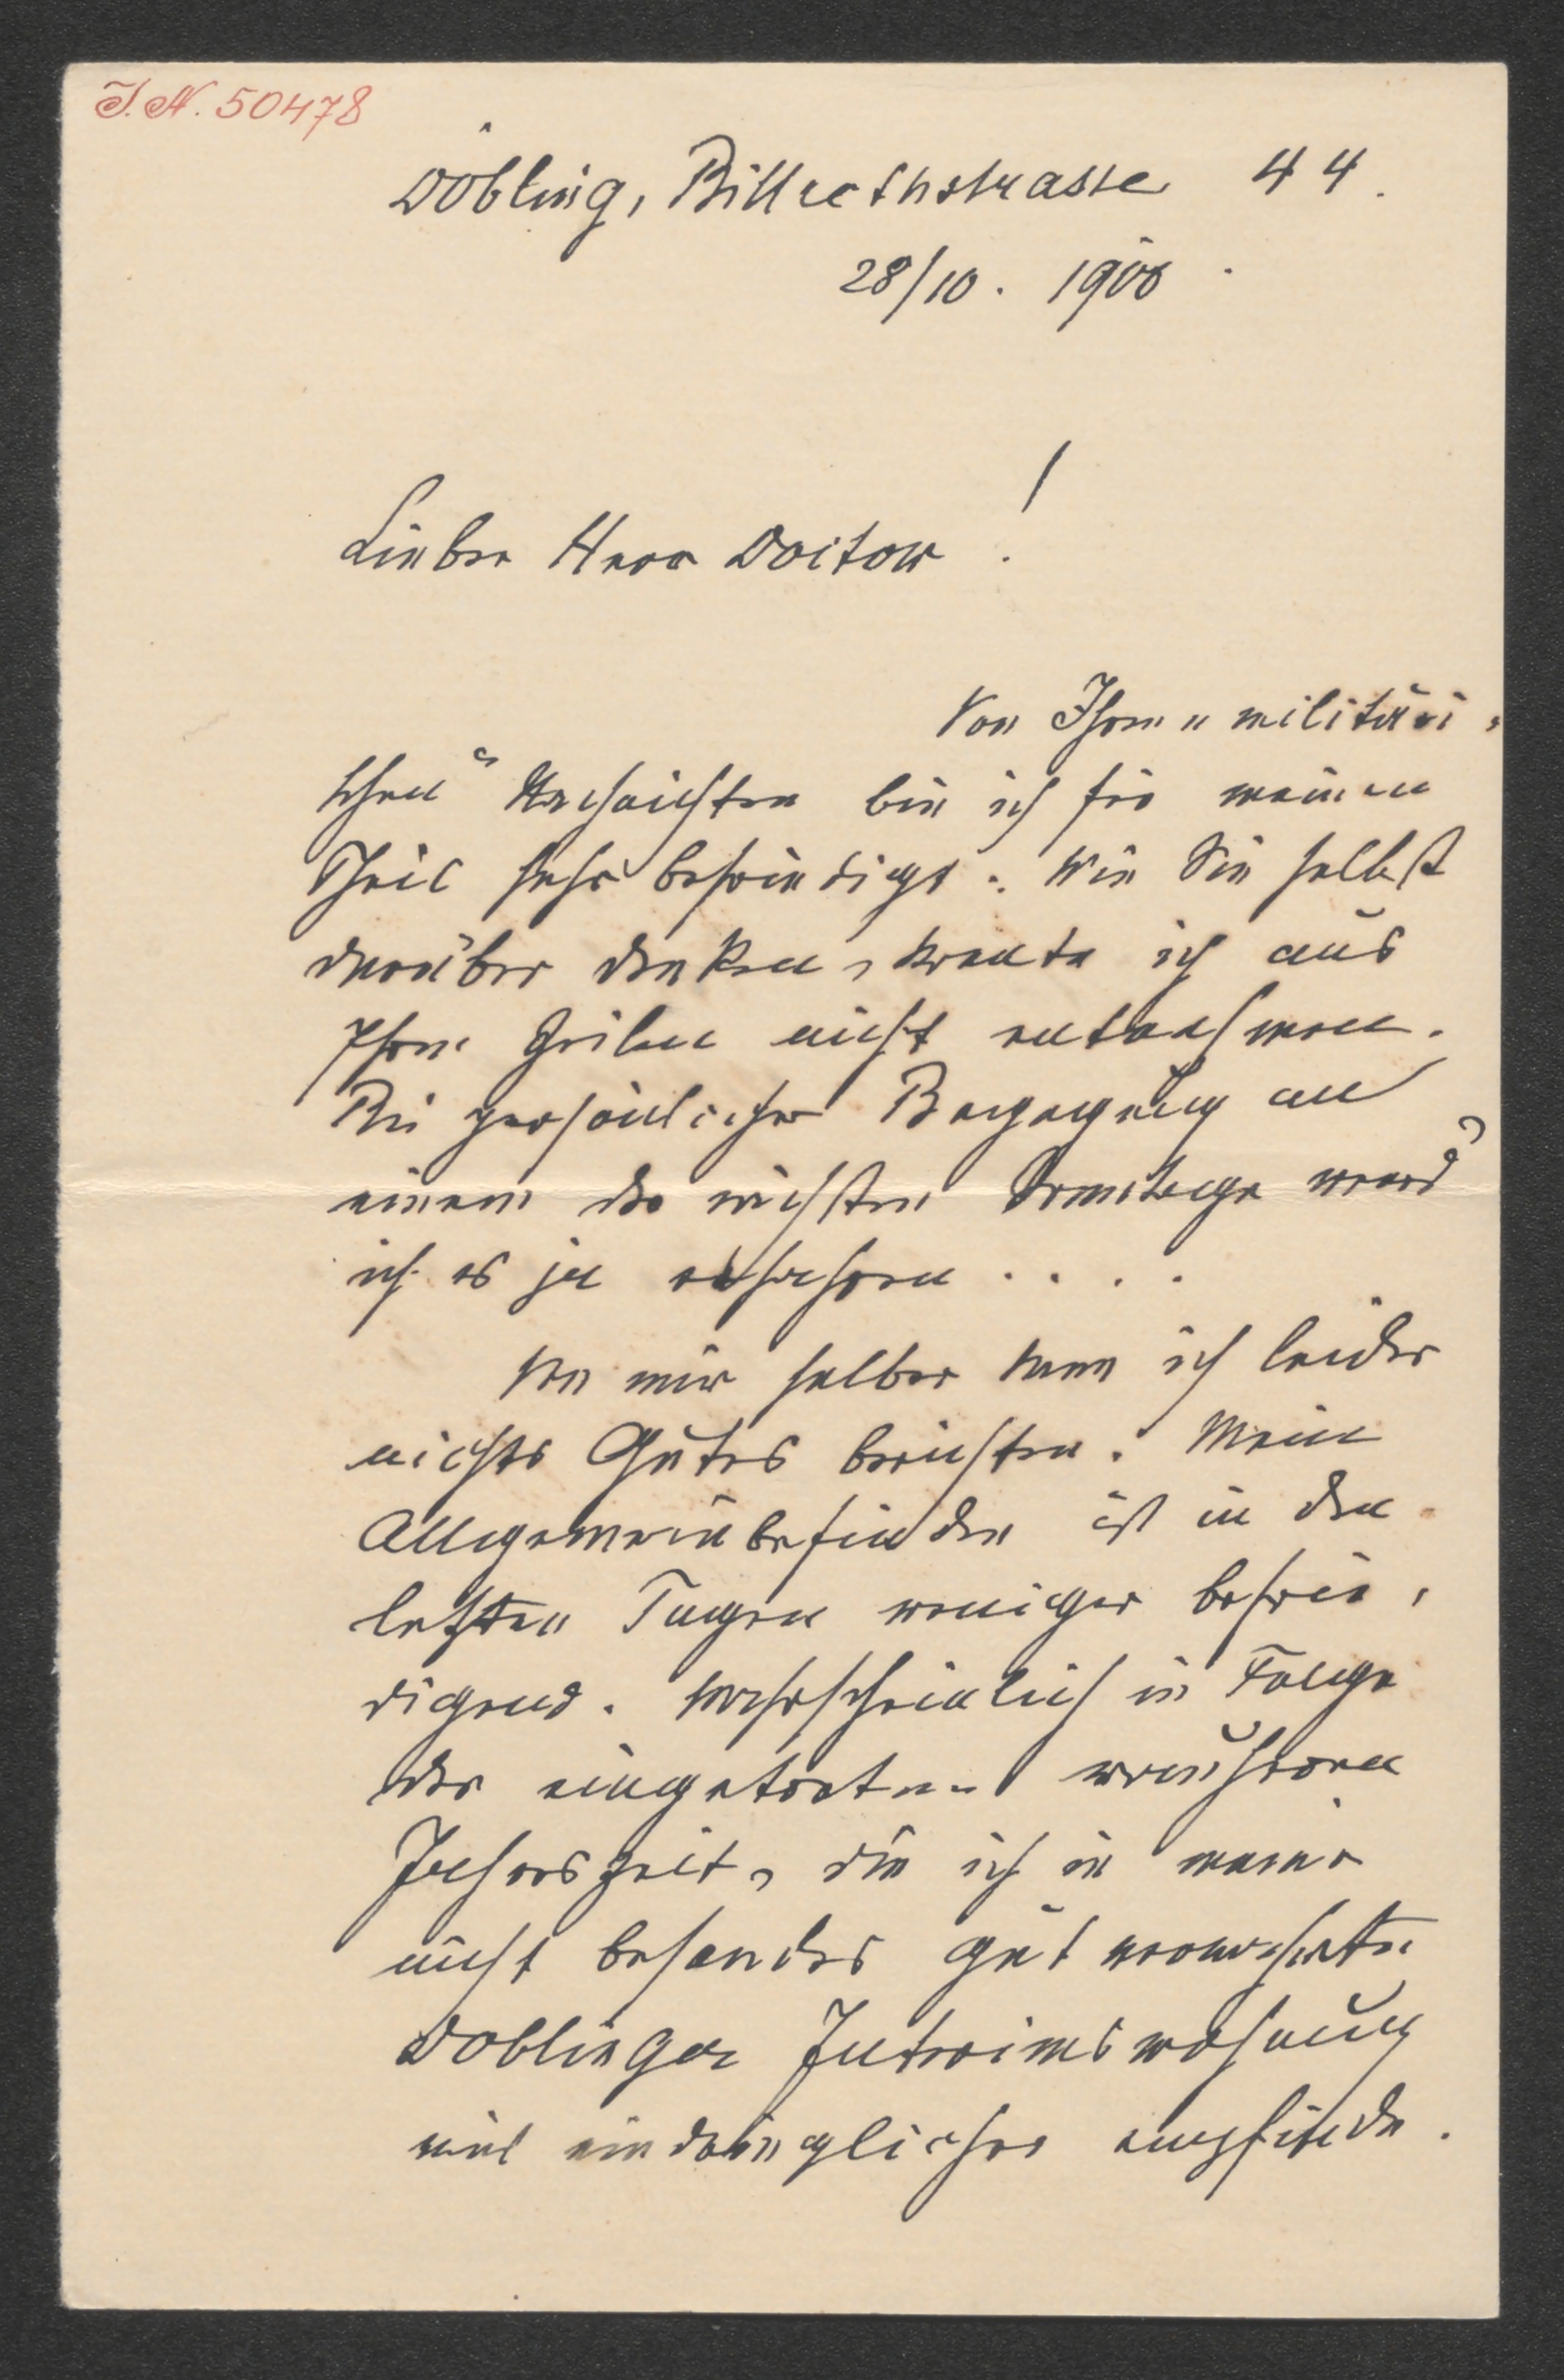 I. N. 50478
Döbling, Billrothstrasse 44.
28/10. 1906.
Lieber Herr Doctor!
Von Ihren „militäri-
schen“ Nachrichten bin ich für meinen
Theil sehr befriedigt. Wie Sie selbst
darüber denken, konnte ich aus
Ihren Zeilen nicht entnehmen.
Bei persönlicher Begegnung an
einem der nächsten Sonntage werd'
ich es ja erfahren....
Von mir selber kann ich leider
nichts Gutes berichten. Mein
Allgemeinbefinden ist in den
letzten Tagen weniger befrie-
digend. Wahrscheinlich in Folge
der eingetretenen rauheren
Jahreszeit, die ich in meiner
nicht besonders gut verwahrten
Döblinger Interimswohnung
viel eindringlicher empfinde.